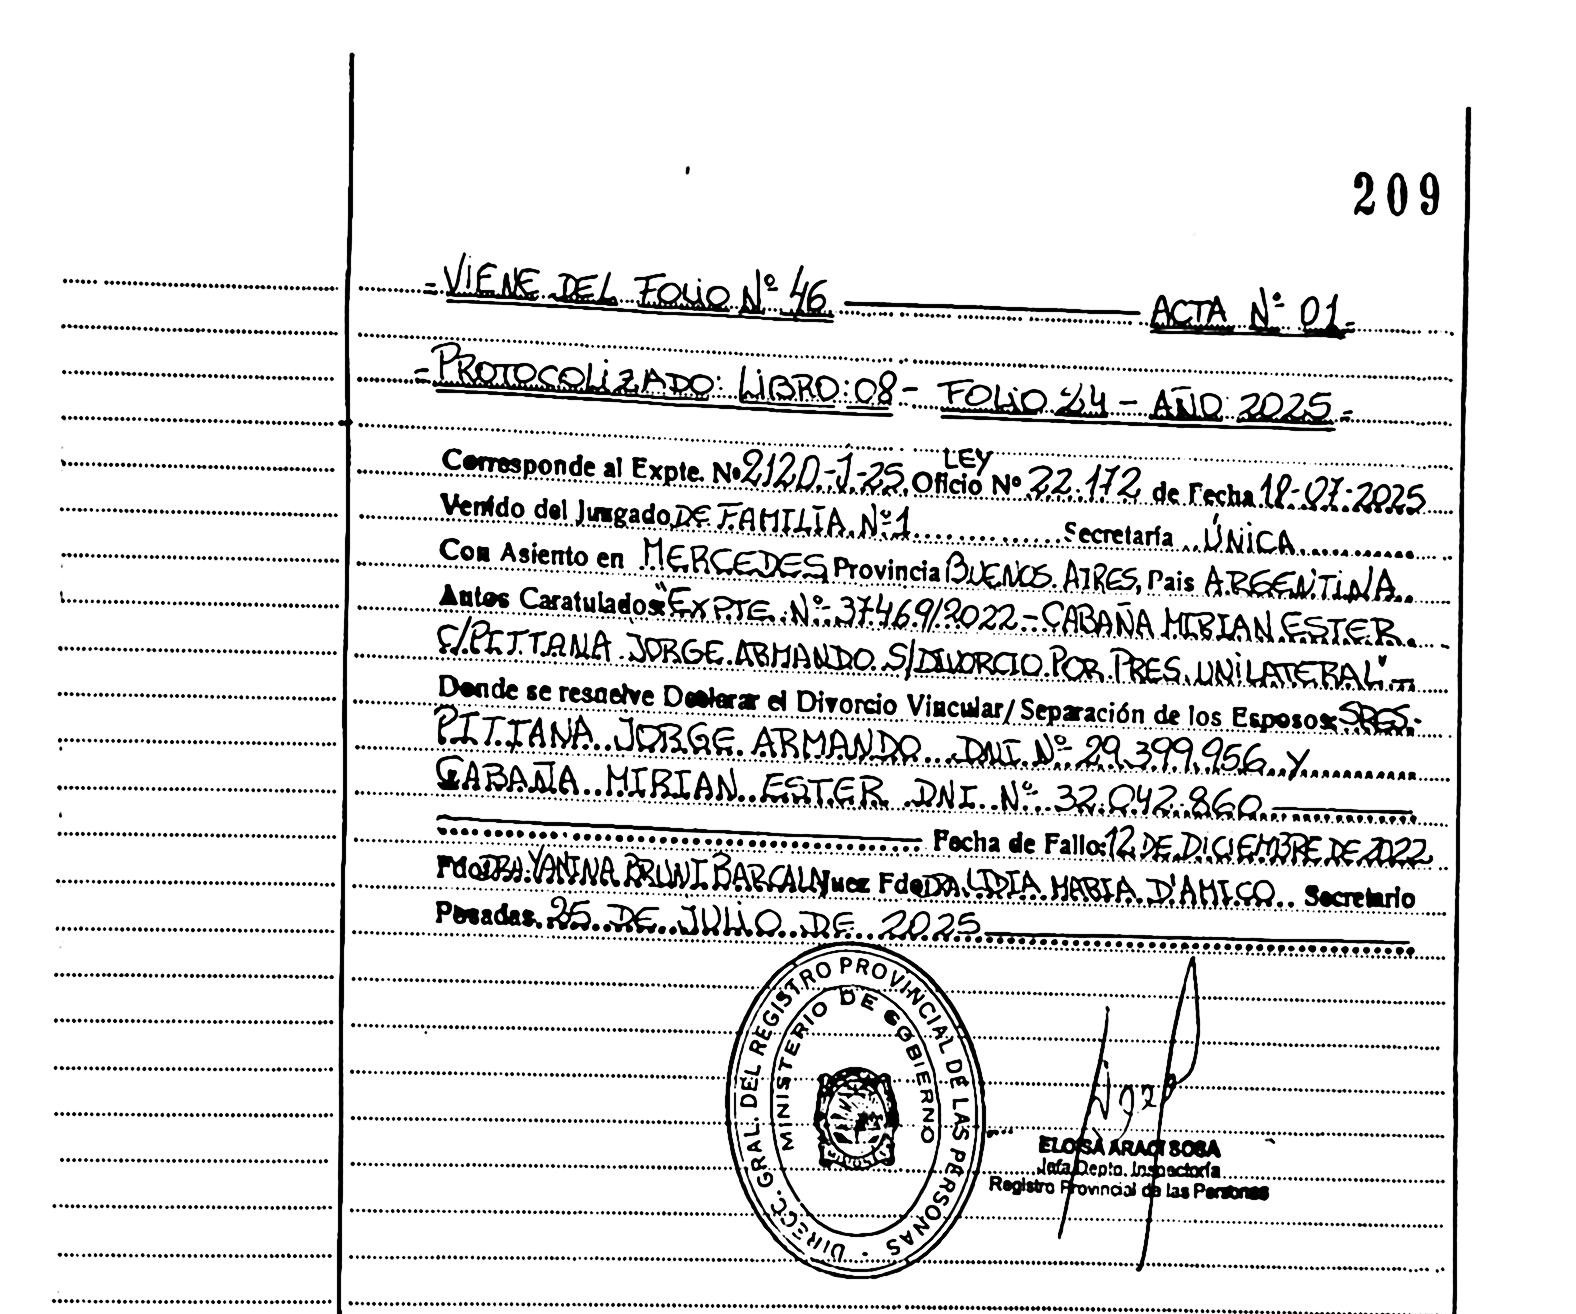 209
=VIENE DEL FOLIO Nº 46 ACTA Nº 01=
=PROTOCOLIZADO: LIBRO: 08 - FOLIO 24 - AÑO 2025=
LEY
Corresponde al Expte. Nº 2120-J-25 Oficio Nº 22.172 de Fecha 18-07-2025
Venido del Juzgado DE FAMILIA Nº 1 Secretaría ÚNICA
Con Asiento en MERCEDES Provincia BUENOS AIRES, Pais ARGENTINA
Autos Caratulados: "EXPTE. Nº 37469/2022 - CABAÑA MIRIAN ESTER
C/PITTANA JORGE ARMANDO S/DIVORCIO POR PRES. UNILATERAL"
Donde se resuelve Declarar el Divorcio Vincular/ Separación de los Esposos: SRES.
PITTANA JORGE ARMANDO DNI Nº 29.399.956 Y
CABAÑA MIRIAN ESTER DNI Nº 32.042.860
Fecha de Fallo: 12 DE DICIEMBRE DE 2022
Fdo DRA. YANINA BRUNI Juez Fdo DRA. LIDIA MARIA D'AMICO Secretario
Posadas, 25 DE JULIO DE 2025
DIRECC. GRAL. DEL REGISTRO PROVINCIAL DE LAS PERSONAS
MINISTERIO DE GOBIERNO
ELOISA ARACI SOSA
Jefa Depto. Inspectoría
Registro Provincial de las Personas